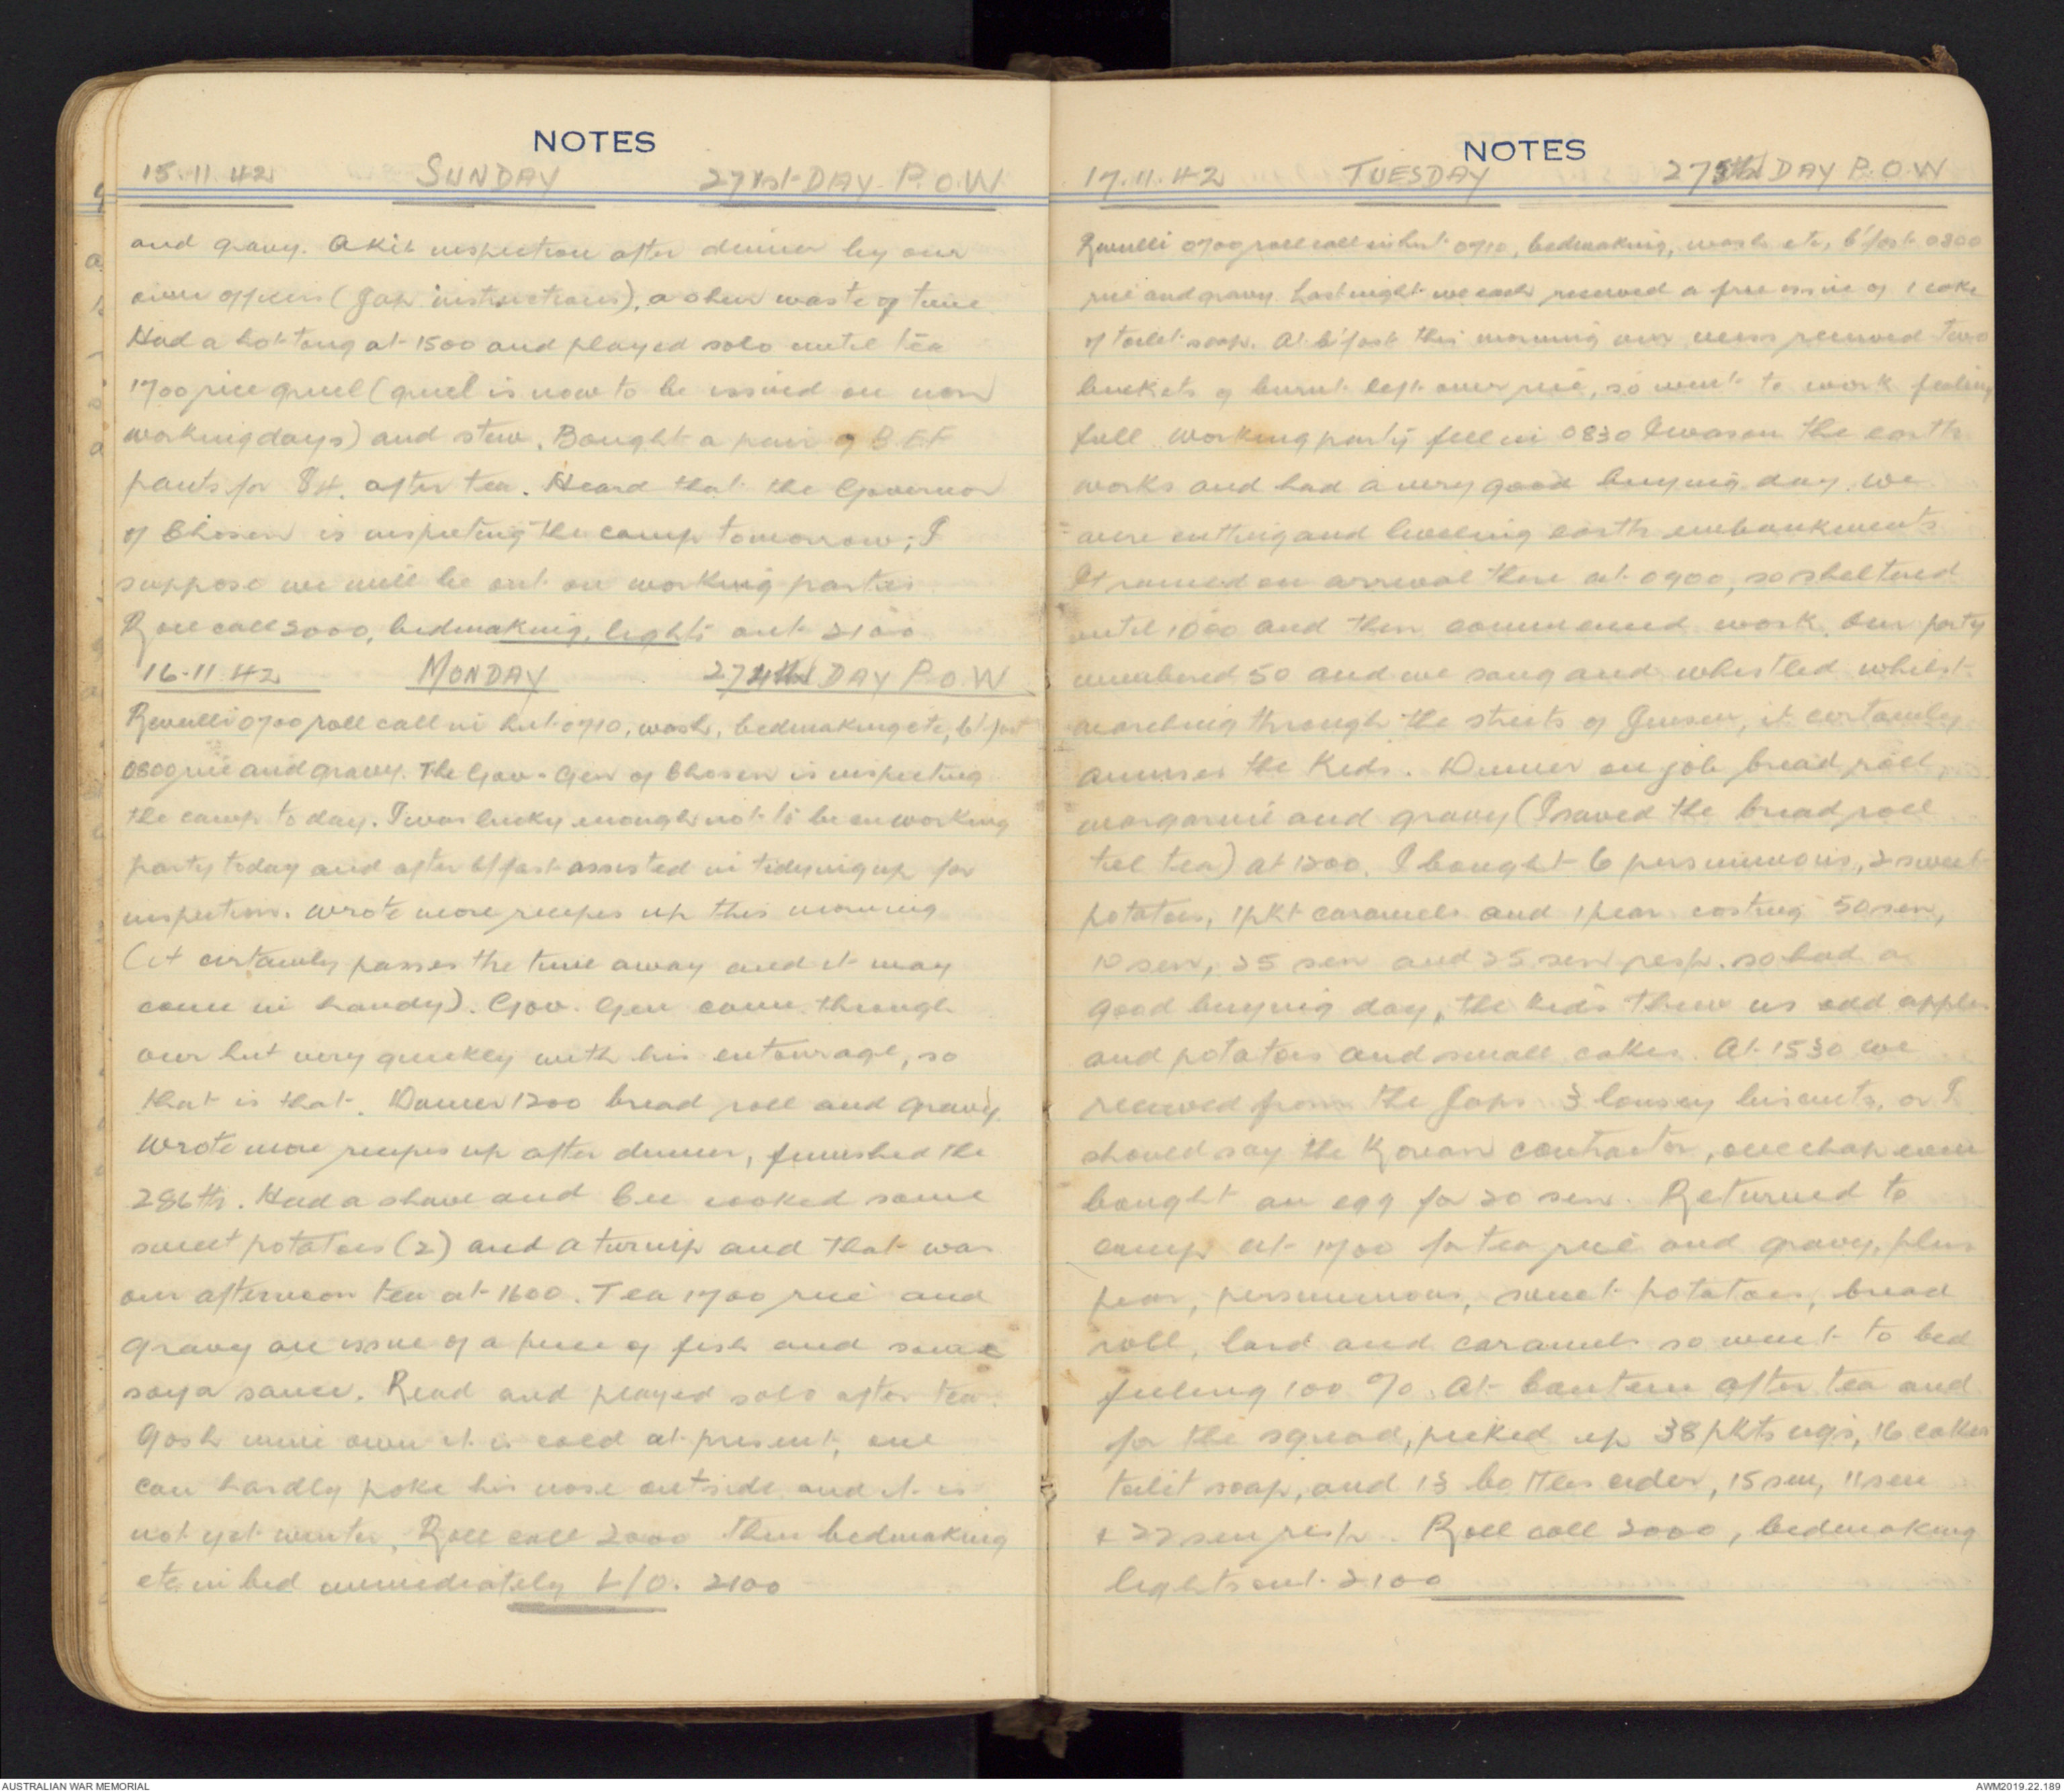 NOTES
15.11.42 SUNDAY 271st DAY P.O.W
and gravy. A kit inspection after dinner by our
own officers (Jap instructions), a sheer waste of time.
Had a hot tong at 1500 and played solo until tea
1700 rice gruel (gruel is now to be issued on non
working days) and stew. Bought a pair of B.E.F
pants for after tea. Heard that the Governor
of Chosen is inspecting the camp tomorrow; I
suppose we will be out on working parties
Roll call 2000, bedmaking, lights out 2100
16.11.42 MONDAY 274th DAY P.O.W
Revulli 0700 roll call in hut 0710, wash, bedmaking etc, b'fast
0800 rice and gravy. The Gov-Gen of Chosen is inspecting
the camp to day. I was lucky enough not to be on working
party today and after b'fast assisted in tidying up for
inspection. Wrote more recipes up this morning
(it certainly passes the time away and it may
come in handy). Gov. Gen came through
our hut very quickly with his entourage, so
that is that. Dinner 1200 bread roll and gravy.
Wrote more recipes up after dinner, finished the
286th. Had a shave and cooked some
sweet potatoes (2) and a turnip and that was
our afternoon tea at 1600. Tea 1700 rice and
gravy an issue of a piece of fish and some
soya sauce. Read and played solo after tea.
Gosh mine own it is cold at present, one
can hardly poke his nose outside and it is
not yet winter. Roll call 2000 then bedmaking
etc in bed immediately L/O. 2100
NOTES
17.11.42 TUESDAY 275th DAY P.O.W
Revulli 0700 roll call in hut 0710, bedmaking, wash etc, b'fast 0800
rice and gravy. Last night we each received a free issue of 1 cake
of toilet soap. At b'fast this morning our mess received two
buckets of burnt left over rice, so went to work feeling
full. Working party fell in 0830 I was on the earth
works and had a very good buying day. We
were cutting and leveling earth embankments
It rained on arrival there at 0900, so sheltered
until 1000 and then commenced work. Our party
numbered 50 and we sang and whistled whilst
marching through the streets of Jinsen, it certainly
amuses the kids. Dinner on job bread roll,
margarine and gravy (I saved the bread roll
till tea) at 1200. I bought 6 persimmons, 2 sweet
potatoes, 1 pkt caramels and 1 pear costing 50 sen,
10 sen, 25 sen and 25 sen resp. so had a
good buying day, the kids threw us odd apples
and potatoes and small cakes. At 1530 we
received from the Japs 3 lousey biscuits, or I
should say the Korean contractor, one chap even
bought an egg for 20 sen. Returned to
camp at 1700 for tea rice and gravy, plus
pear, persimmons, sweet potatoes, bread
roll, lard and caramels so went to bed
feeling 100%. At Canteen after tea and
for the squad, picked up 38 pkts cigs, 16 cakes
toilet soap, and 13 bottles cider, 15 sen, 11 sen
+ 22 sen resp. Roll call 2000, bedmaking
lights out 2100
AUSTRALIAN WAR MEMORIAL
AWM2019.22.189